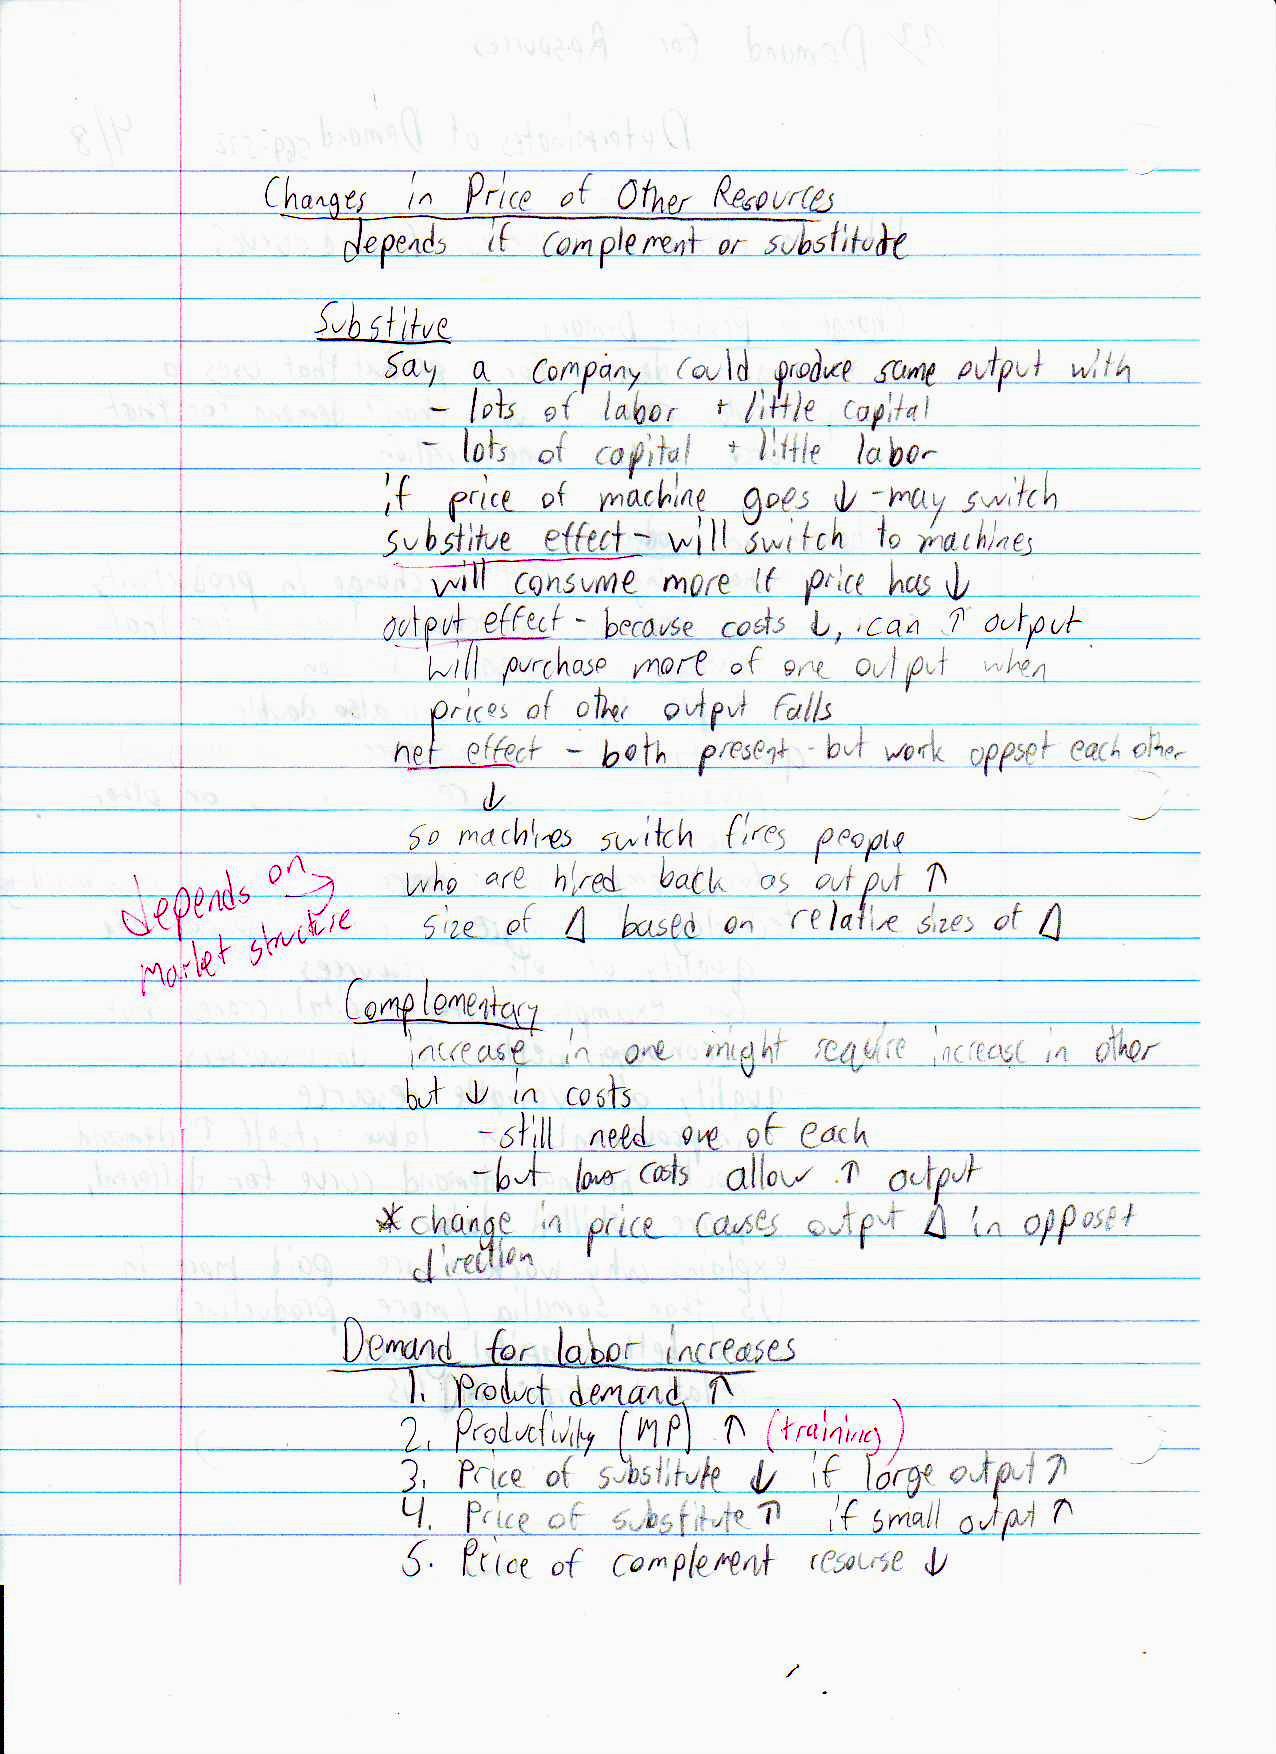 Changes in Price of Other Resources
depends if complement or substitute
Substitue
Say a company could produce same output with
- lots of labor + little capital
- lots of capital + little labor
if price of machine goes ↓ - may switch
substitue effect - will switch to machines
will consume more if price has ↓
output effect - because costs ↓, can ↑ output
will purchase more of one output when
prices of other output falls
net effect - both present - but work oppset each other
↓
so machines switch fires people
who are hired back as output ↑
depends on →
market structure
size of Δ based on relative sizes of Δ
Complementary
increase in one might require increase in other
but ↓ in costs
- still need one of each
- but lower costs allow ↑ output
* change in price causes output Δ in opposet
direction
Demand for labor increases
1. Product demand ↑
2. Productivity (MP) ↑ (training)
3. Price of substitute ↓ if large output ↑
4. Price of substitute ↑ if small output ↑
5. Price of complement resourse ↓